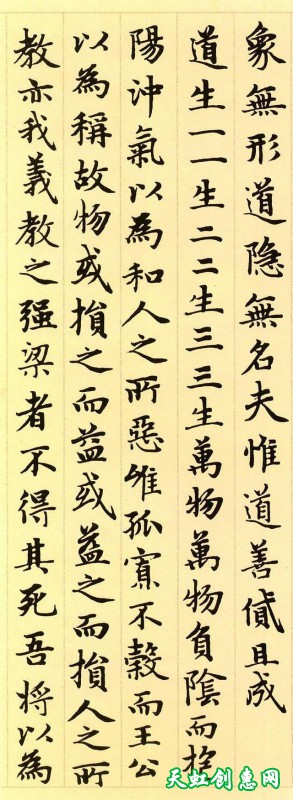 象無形道隐無名夫惟道善貸且成
道生一一生二二生三三生萬物萬物負陰而抱
陽沖氣以為和人之所惡唯孤寡不穀而王公
以為稱故物或損之而益或益之而損人之所
教亦我義教之强梁者不得其死吾將以為
天虹创惠网